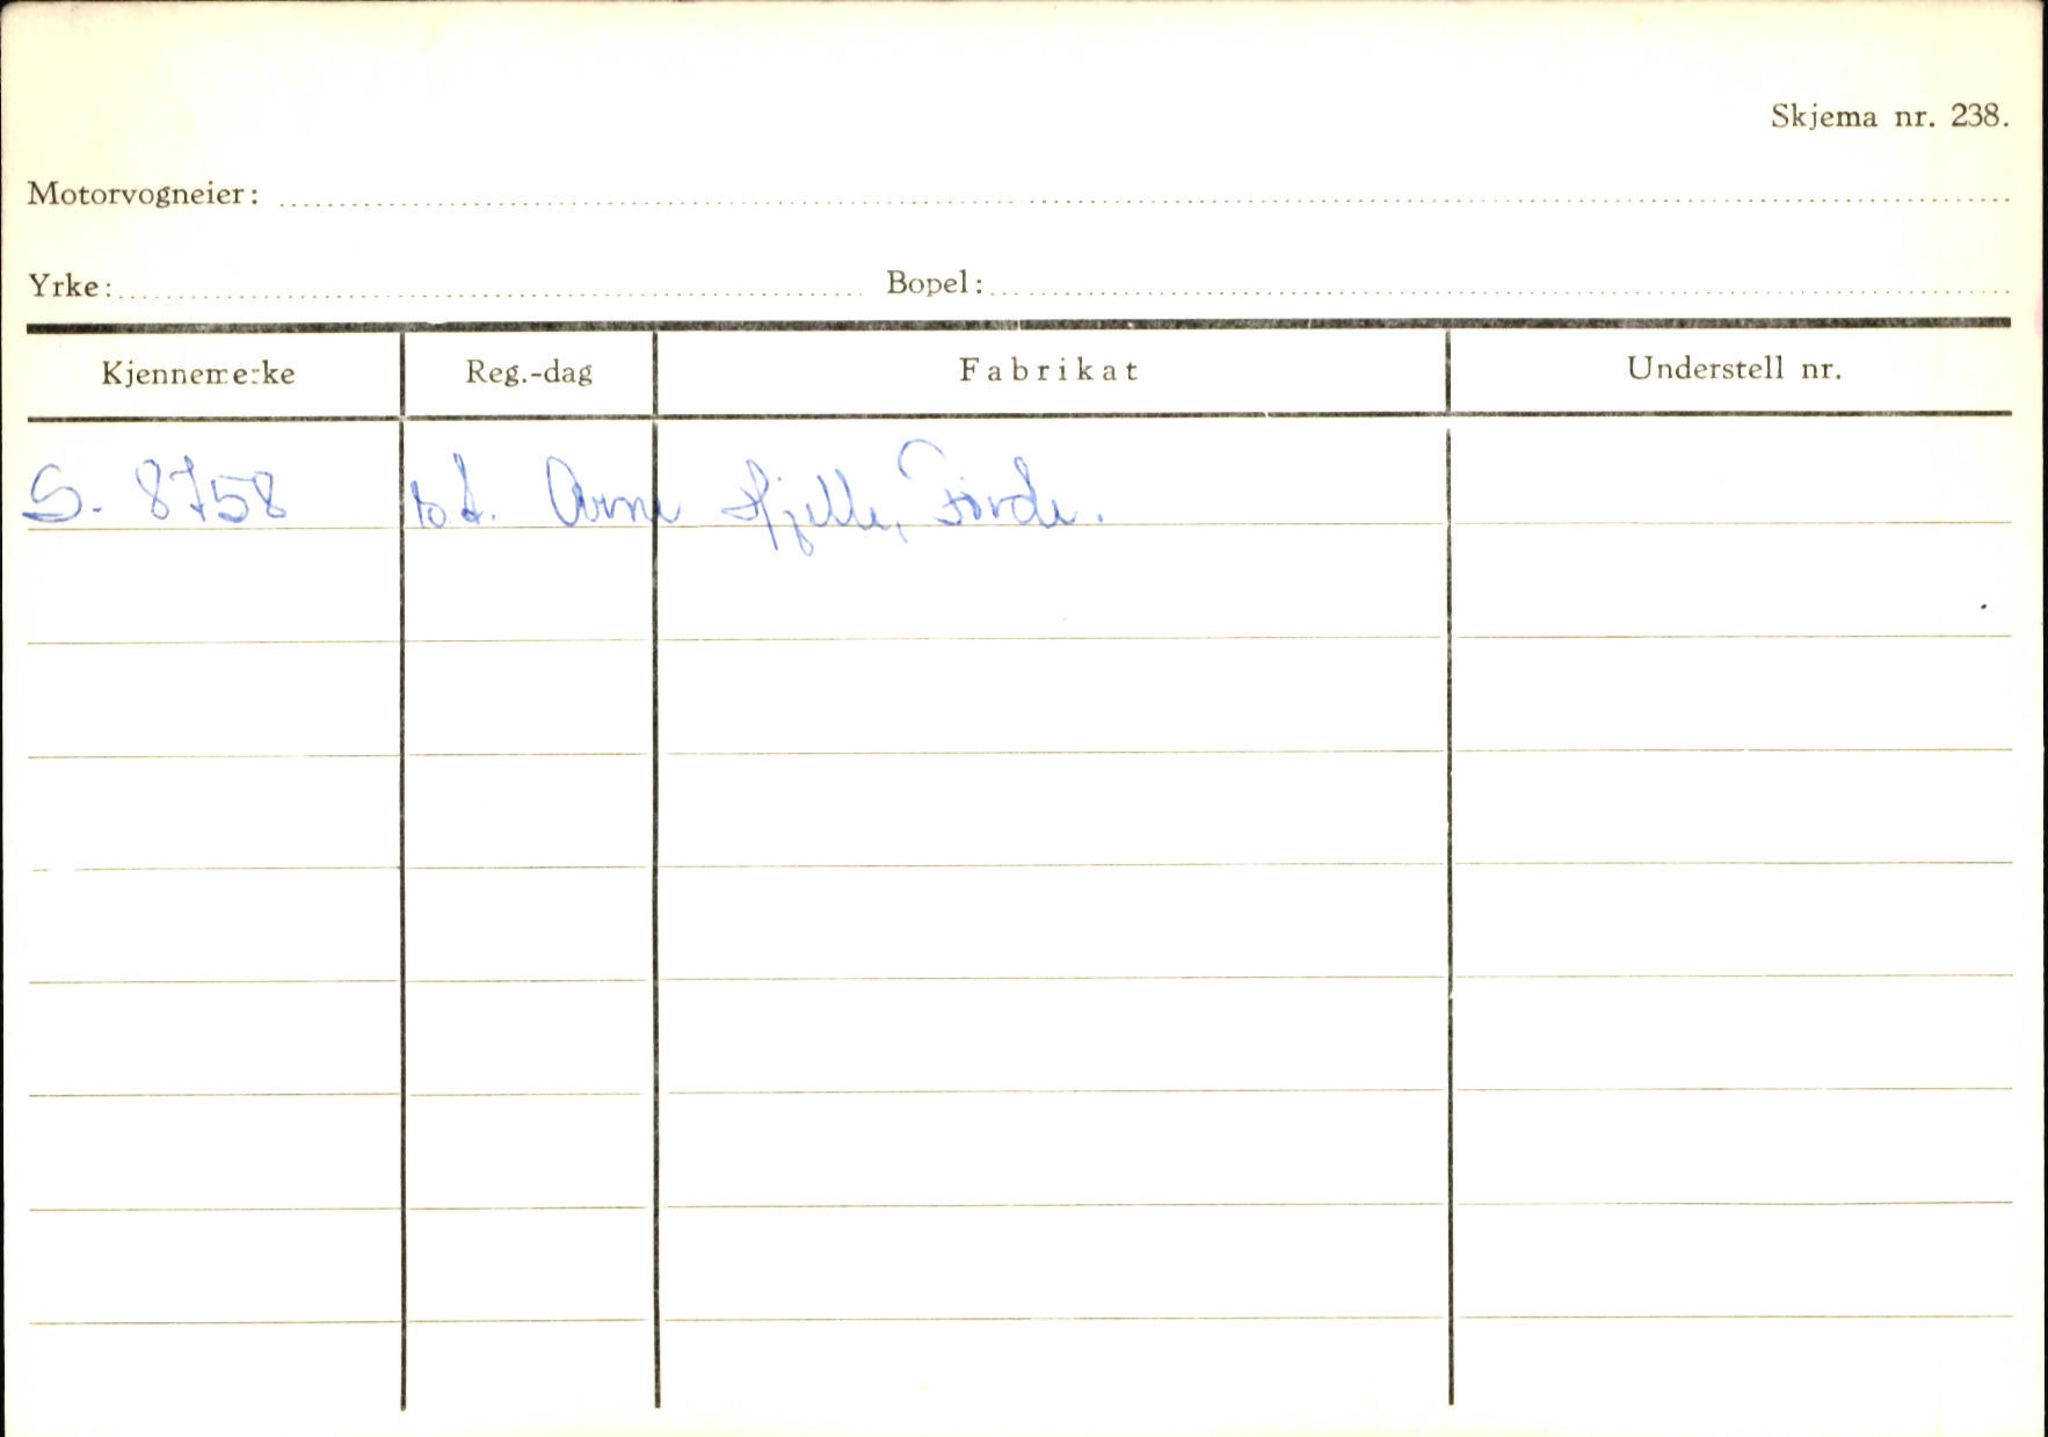 Skjema nr. 238.
Motorvogneier:
Yrke: Bopel:
Kjennemerke Reg.-dag Fabrikat Understell nr.
S. 8758 Arne Hjelle, Førde.